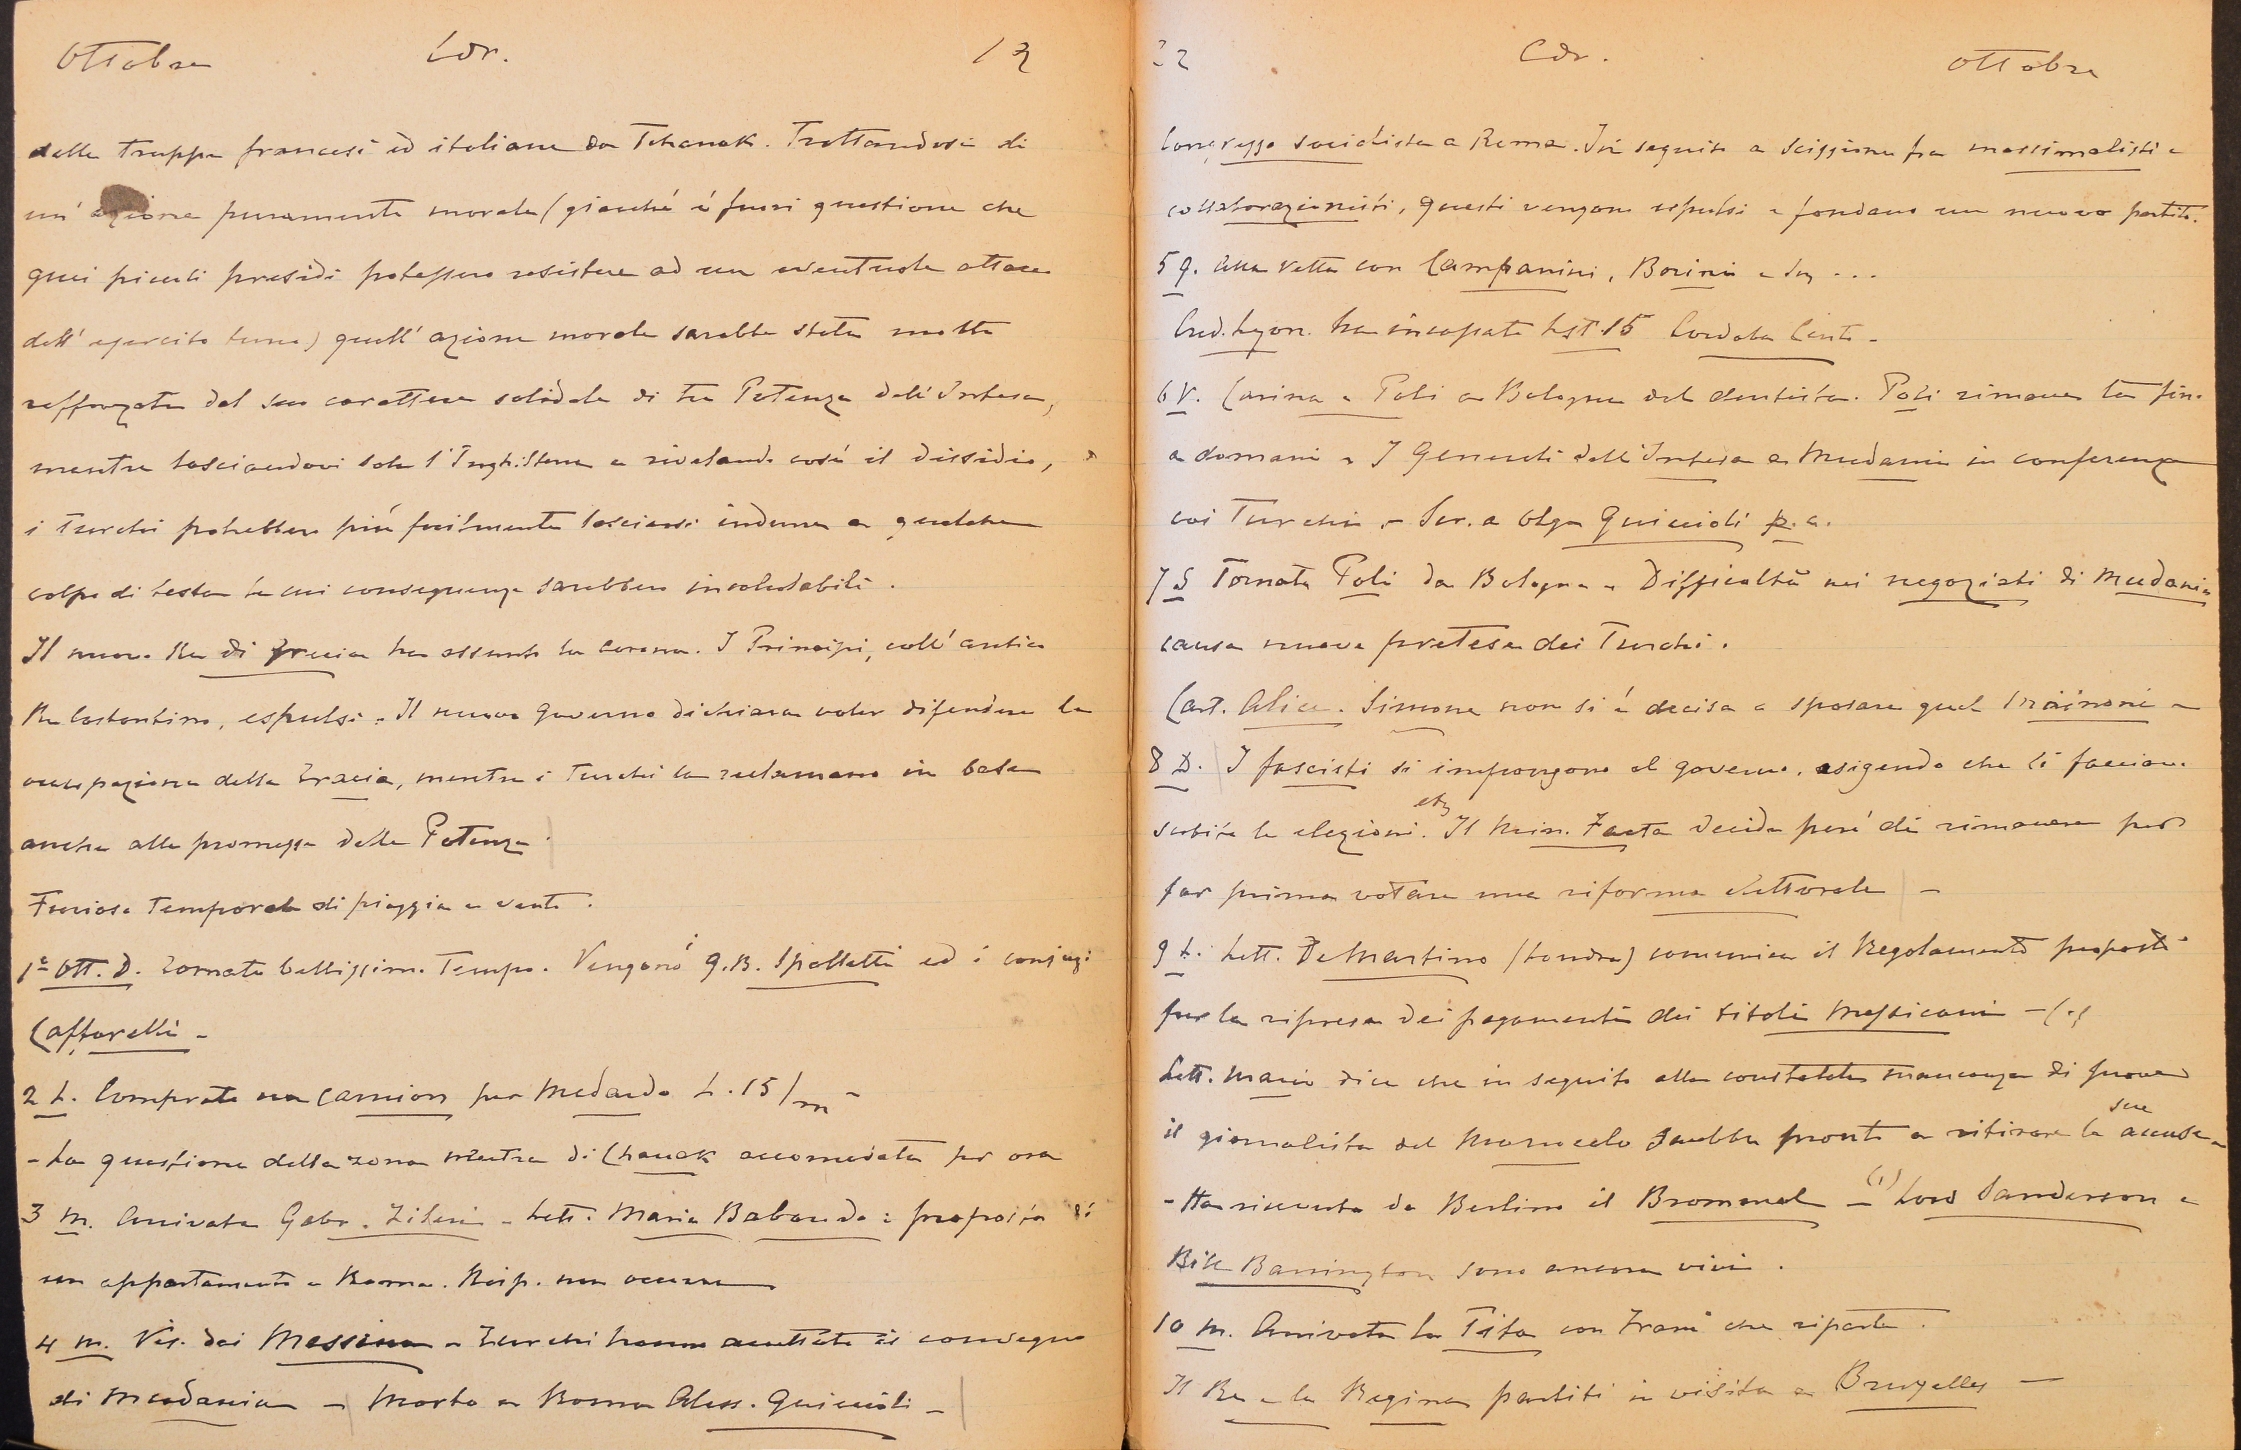 Ottobre Cor. 13
delle truppe francesi ed italiane da Tchanak. Trattandosi di
un' azione puramente morale (giacché è fuori questione che
quei piccoli presidi potessero resistere ad un eventuale attacco
dell' esercito turco) quell' azione morale sarebbe stata molto
rafforzata dal suo carattere solidale di tre Potenze dell' Intesa,
mentre lasciandovi sola l' Inghilterra e rivelando così il dissidio,
i Turchi potrebbero più facilmente lasciarsi indurre a qualche
colpo di testa le cui conseguenze sarebbero incalcolabili.
Il nuovo Re di Grecia ha assunto la corona. I Principi, coll' antico
Re Costantino, espulsi. Il nuovo Governo dichiara voler difendere la
occupazione della Tracia, mentre i Turchi la reclamano in base
anche alle promesse delle Potenze
Furioso temporale di pioggia e vento.
1° Ott. D. Tornato bellissimo tempo. Vengono i G.B. Spalletti ed i coniugi
Caffarelli -
2 L. Comprato un camion per Medardo L. 15/m -
- La questione della zona neutra di Chanak accomodata per ora
3 M. Arrivata Gabr. Zileri - Lett. Maria Babando: proposta di
un appartamento a Roma. Risp. non occorre
4 M. Vis. dai Messina - Turchi hanno accettato il convegno
di Mudania - Morto a Roma Aless. Guiccioli -
22 Cor. Ottobre
Congresso socialista a Roma. In seguito a scissione fra massimalisti e
collaborazionisti, questi vengono espulsi e fondano un nuovo partito.
5 G. Alla Vetta con Campanini, Borini e ...
Cred. Lyon. ha incassato Lst 15 Cordoba Cent. -
6 V. Carina e Poli a Bologna dal dentista. Poli rimane là fino
a domani - I Generali dell' Intesa a Mudania in conferenza
coi Turchi. - Scr. a Olga Guiccioli p.c.
7 S Tornato Poli da Bologna - Difficoltà nei negoziati di Mudania
causa nuove pretese dei Turchi.
Cart. Alice. Simone non si è decisa a sposare quel Mainoni -
8 D. I fascisti si impongono al governo, esigendo che si facciano
subito le elezioni. etc Il Min. Facta decide però di rimanere per
far prima votare una riforma elettorale -
9 L. Lett. De Martino (Londra) comunica il Regolamento proposto
per la ripresa dei pagamenti dei titoli Messicani -
Lett. Mario dice che in seguito alla constatata mancanza di prove
il giornalista del Marocco sarebbe pronto a ritirare le sue accuse -
- Ho ricevuto da Berlino il Bromural - (1) Lord Sanderson e
Bill Barrington sono ancora vivi.
10 M. Arrivata la Tita con Frani che riparte.
Il Re e la Regina partiti in visita a Bruxelles -